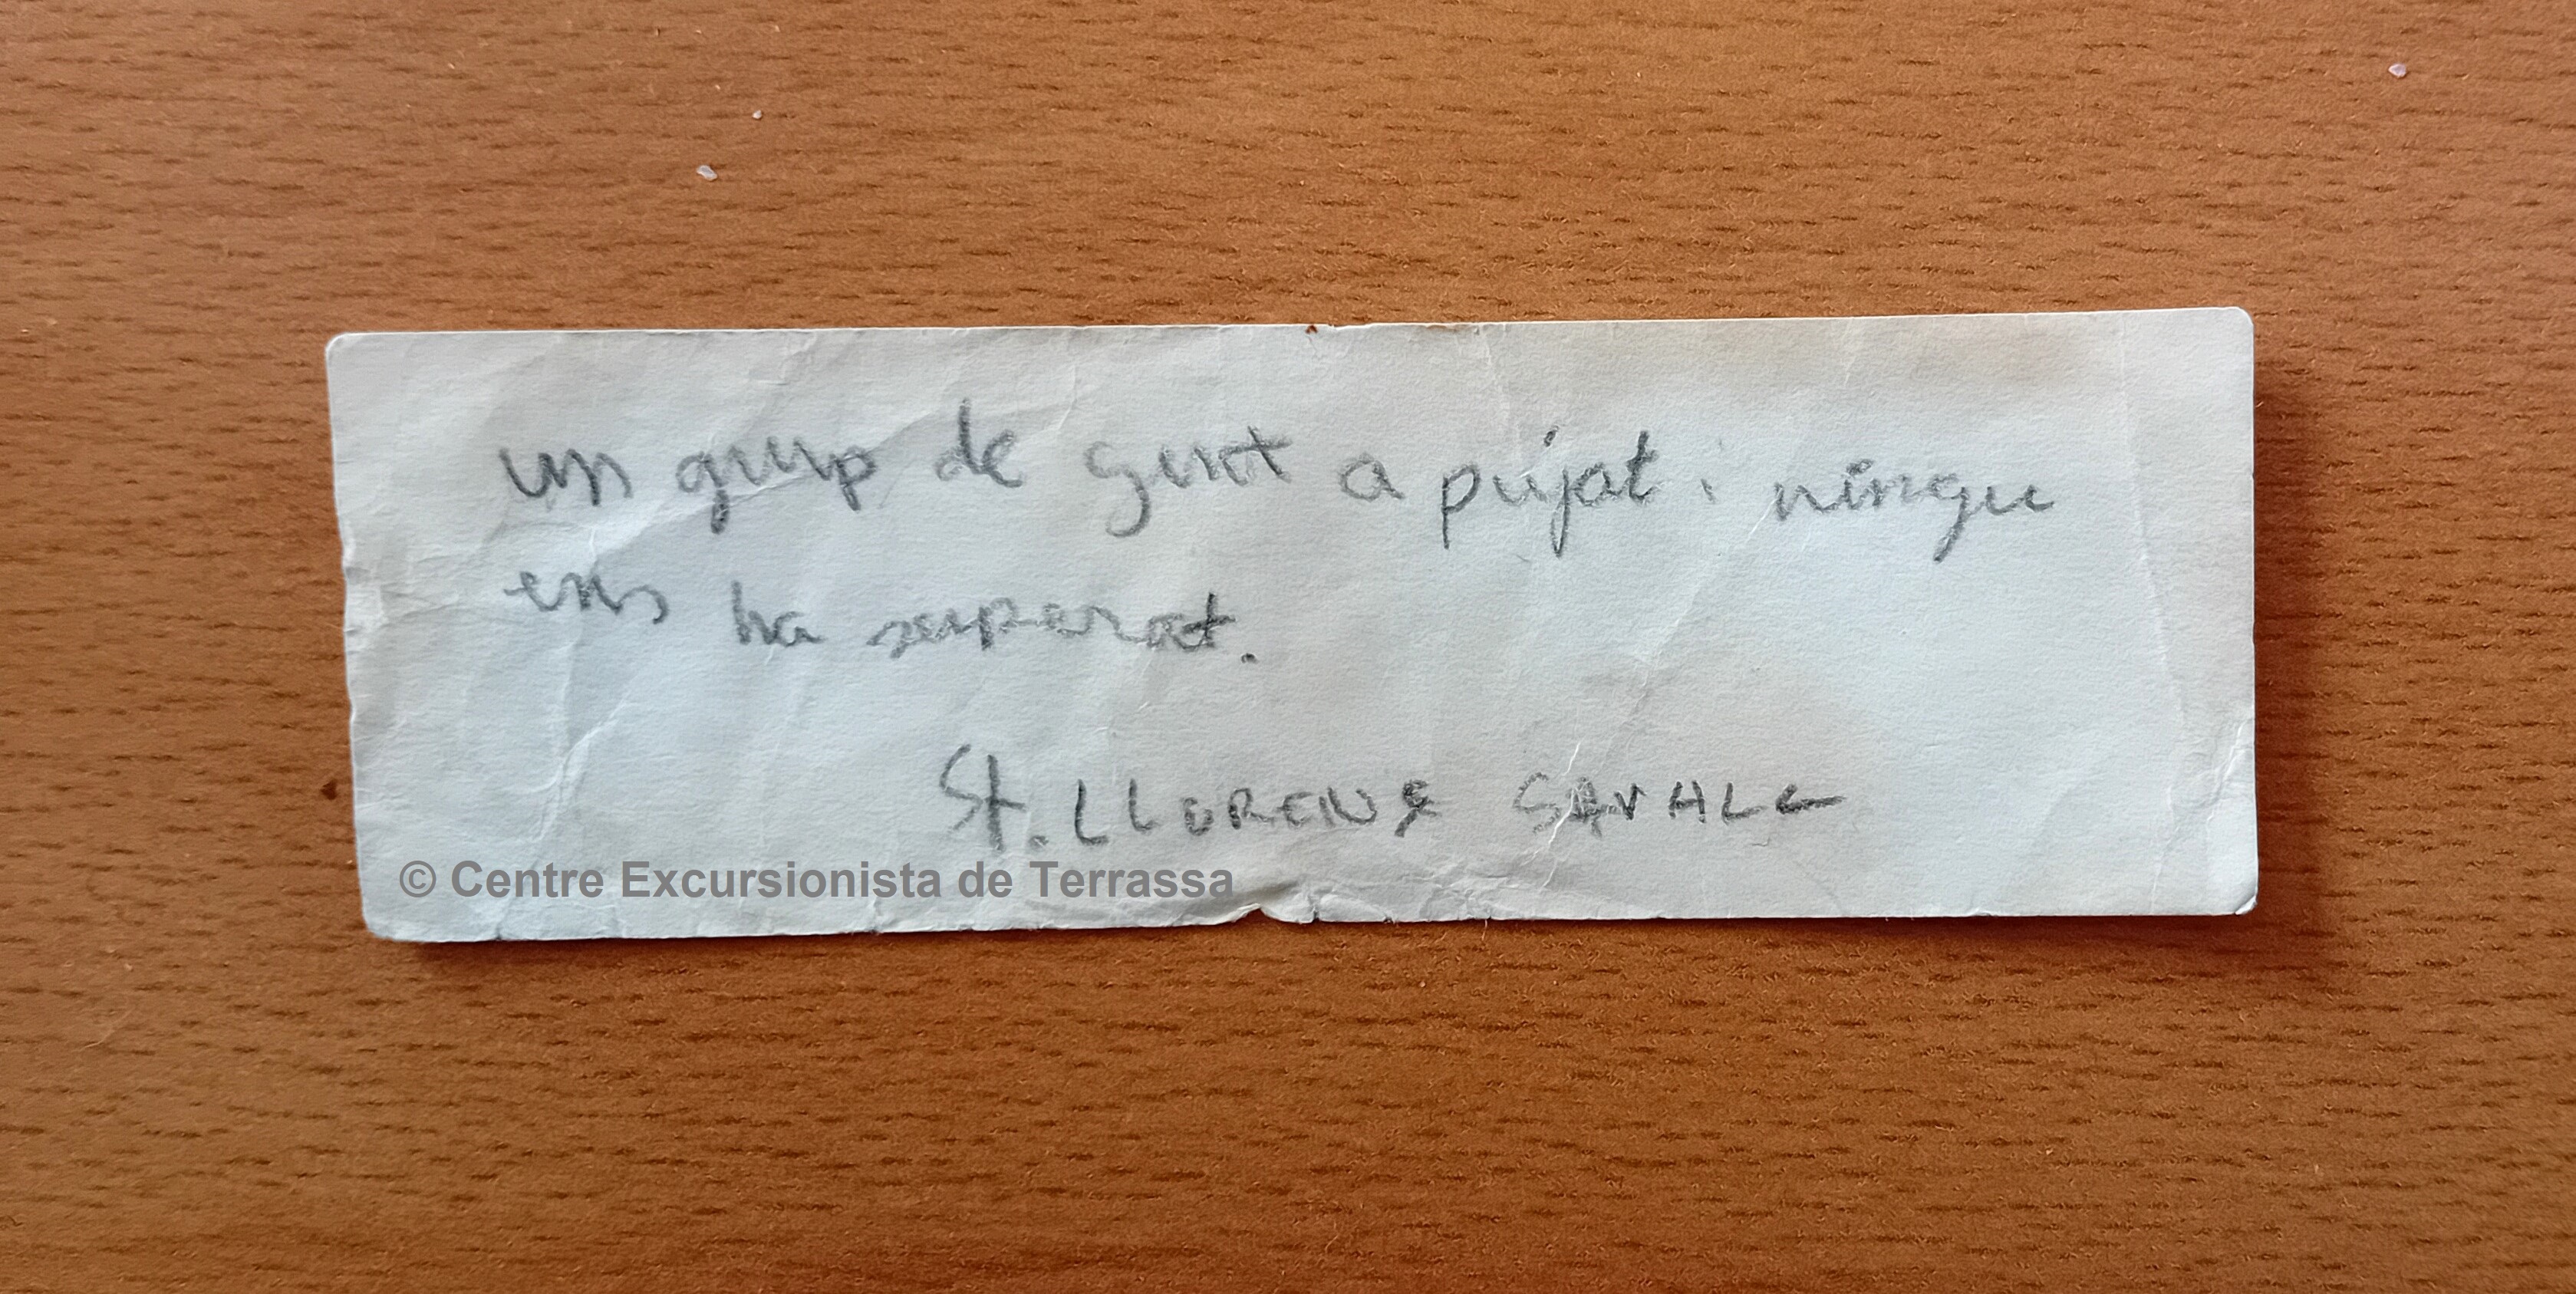 un grup de gent a pujat i ningu
ens ha superat.
St. LLORENÇ SAVALL
© Centre Excursionista de Terrassa